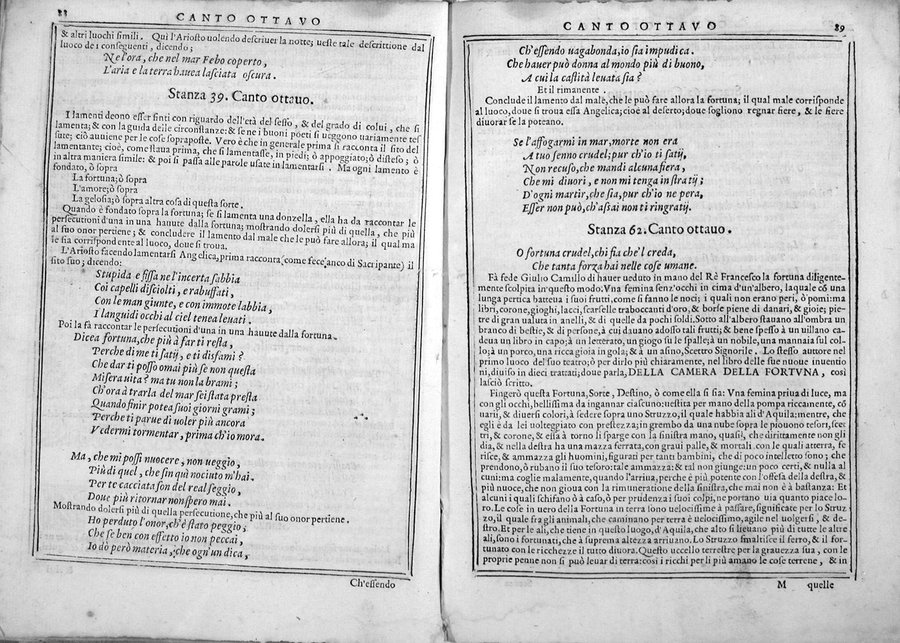 88
CANTO OTTAVO
& altri luochi simili. Qui l'Ariosto uolendo descriuer la notte; ueste tale descrittione dal
luoco de i conseguenti, dicendo;
Ne l'ora, che nel mar Febo coperto,
L'aria e la terra hauea lasciata oscura.
Stanza 39. Canto ottauo.
I lamenti deono esser finti con riguardo dell'età del sesso, & del grado di colui, che si
lamenta; & con la guida delle circonstanze: & se ne i buoni poeti si ueggono uariamente tes
sute; ciò auuiene per le cose soprapposte. Vero è che in generale prima si racconta il sito del
lamentante; cioè, come staua prima, che si lamentasse, in piedi; ò appoggiato; ò disteso; ò
in altra maniera simile: & poi si passa alle parole usate in lamentarsi. Ma ogni lamento è
fondato, ò sopra
La fortuna; ò sopra
L'amore; ò sopra
La gelosia; ò sopra altra cosa di questa sorte.
Quando è fondato sopra la fortuna; se si lamenta una donzella, ella ha da raccontar le
persecutioni d'una in una hauute dalla fortuna; mostrando dolersi più di quella, che più
al suo onor pertiene; & concludere il lamento dal male che le può fare allora; il qual ma
le sia corrispondente al luoco, doue si troua.
L'Ariosto facendo lamentarsi Angelica, prima racconta (come fece anco di Sacripante) il
sito suo; dicendo:
Stupida e fissa ne l'incerta sabbia
Coi capelli disciolti, e rabuffati,
Con le man giunte, e con immote labbia,
I languidi occhi al ciel tenea leuati.
Poi la fà raccontar le persecutioni d'una in una hauute dalla fortuna.
Dicea fortuna, che più à far ti resta,
Perche di me ti satij, e ti disfami?
Che dar ti posso omai più se non questa
Misera uita? ma tu non la brami;
Ch'ora à trarla del mar sei stata presta
Quando finir potea suoi giorni grami;
Perche ti parue di uoler più ancora
Vedermi tormentar, prima ch'io mora.
Ma, che mi possi nuocere, non ueggio,
Più di quel, che sin quì nociuto m'hai.
Per te cacciata son del real seggio,
Doue più ritornar non spero mai.
Mostrando dolersi più di quella persecutione, che più al suo onor pertiene.
Ho perduto l'onor, ch'è stato peggio;
Che se ben con effetto io non peccai,
Io dò però materia, che ogn'un dica,
Ch'essendo
CANTO OTTAVO
89
Ch'essendo uagabonda, io sia impudica.
Che hauer può donna al mondo più di buono,
A cui la castità leuata sia?
Et il rimanente.
Conclude il lamento dal male, che le può fare allora la fortuna; il qual male corrisponde
al luoco, doue si troua essa Angelica; cioè al deserto; doue sogliono regnar fiere, & le fiere
diuorar se la poteano.
Se l'affogarmi in mar, morte non era
A tuo senno crudel; pur ch'io ti satij,
Non recuso, che mandi alcuna fiera,
Che mi diuori, e non mi tenga in stratij;
D'ogni martir, che sia, pur ch'io ne pera,
Esser non può, ch'assai non ti ringratij.
Stanza 62. Canto ottauo.
O fortuna crudel, chi fia che'l creda,
Che tanta forza hai nelle cose umane.
Fà fede Giulio Camillo di hauer ueduto in mano del Rè Francesco la fortuna diligente-
mente scolpita in questo modo. Vna femina senz'occhi in cima d'un'albero, la quale cō una
lunga pertica batteua i suoi frutti, come si fanno le noci; i quali non erano peri, ò pomi: ma
libri, corone, gioghi, lacci, scarselle traboccanti d'oro, & borse piene di danari, & gioie; pie-
tre di gran ualuta in anelli, & di quelle da pochi soldi. Sotto all'albero stauano all'ombra un
branco di bestie, & di persone, à cui dauano adosso tali frutti; & bene spesso à un uillano ca-
deua un libro in capo; à un letterato, un giogo su le spalle; à un nobile, una mannaia sul col-
lo; à un porco, una ricca gioia in gola; & à un'asino, Scettro Signorile. Lo stesso autore nel
primo luoco del suo teatro; ò per dirlo più chiaramente, nel libro delle sue nuoue inuentio
ni, diuiso in dieci trattati; doue parla, DELLA CAMERA DELLA FORTVNA, così
lasciò scritto.
Fingerò questa Fortuna, Sorte, Destino, ò come ella si sia: Vna femina priua di luce, ma
con gli occhi, bellissima da ingannar ciascuno: uestita per mano della pompa riccamente, cō
uarij, & diuersi colori, à sedere sopra uno Struzzo, il quale habbia ali d'Aquila: mentre, che
egli è da lei uolteggiato con prestezza; in grembo da una nube sopra le piouono tesori, scet
tri, & corone, & essa à torno li sparge con la sinistra mano, quasi, che dirittamente non gli
dia, & nella destra ha una mazza ferrata, con graui palle, & mortali. con le quali atterra, fe
risce, & ammazza gli huomini, figurati per tanti bambini, che di poco intelletto sono; che
prendono, ò rubano il suo tesoro: tale ammazza: & tal non giunge: un poco certi, & nulla al
cuni: ma coglie malamente, quando l'arriua, perche è più potente con l'offesa della destra, &
più nuoce, che non gioua con la rimuneratione della sinistra, che mai non è à bastanza: Et
alcuni quali schifano ò à caso, ò per prudenza i suoi colpi, ne portano uia quanto piace lo-
ro. Le cose in uero della Fortuna in terra sono uelocissime à passare, significate per lo Struz
zo, il quale fra gli animali, che caminano per terra è uelocissimo, agile nel uolgersi, & de-
stro. Et per le ali, che tiene in questo luogo, d'Aquila, che alto si lieuano più di tutte le altre
ali, sono i fortunati, che à suprema altezza arriuano. Lo Struzzo smaltisce il ferro, & il for-
tunato con le ricchezze il tutto diuora. Questo uccello terrestre per la grauezza sua, con le
proprie penne non si può leuar di terra: così i ricchi per li più amano le cose terrene, & in
M quelle